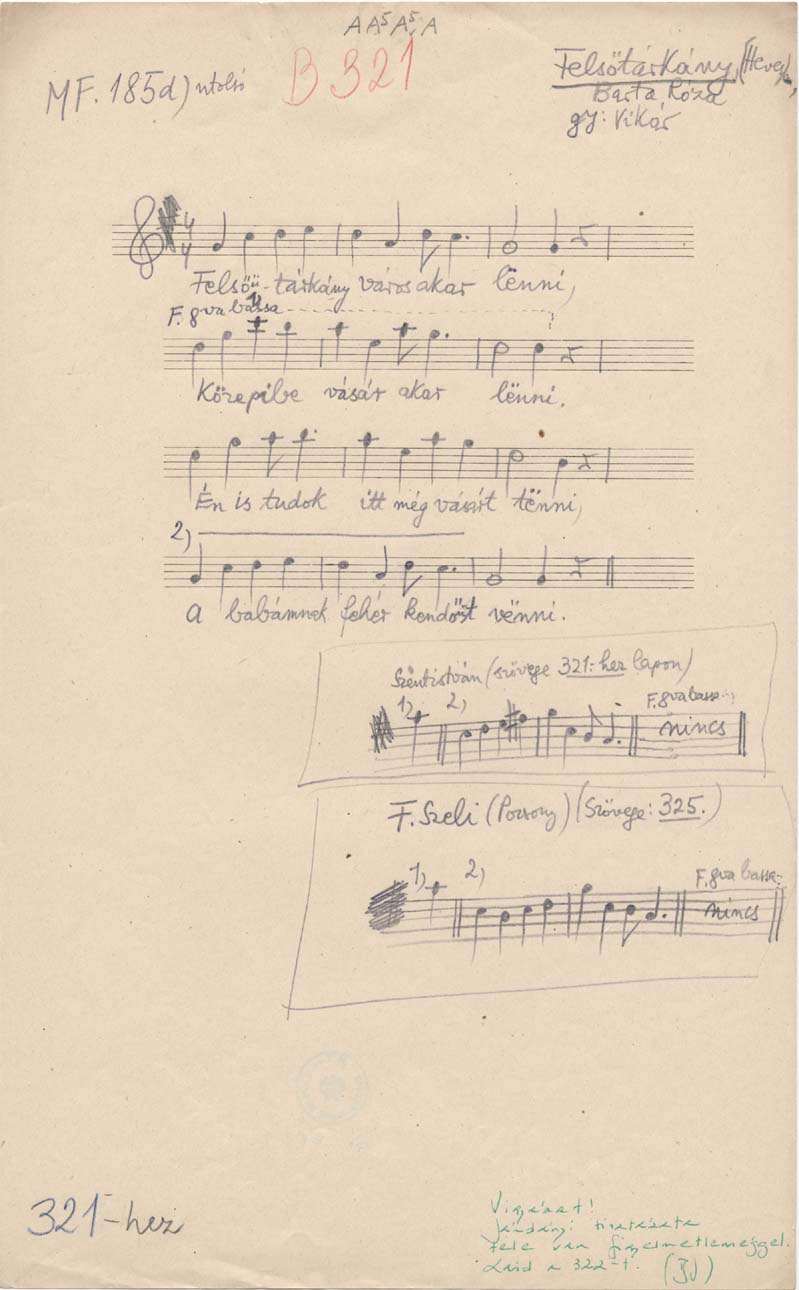 A A⁵ A⁵ A
MF. 185d) utolsó
B 321
Felsőtárkány, (Heves),
Barta Róza
gy: Vikár
4
4
Felsőü-tárkány város akar lënni,
F. 8va bassa
1)
Közepibe vásár akar lënni.
Én is tudok itt még vásárt tënni,
2)
A babámnek fehér kendőt vënni.
Szentistván (szövege 321.-hez lapon)
1) 2) F. 8va bassa:
nincs
F. Szeli (Pozsony) (Szövege: 325.)
1) 2) F. 8va bassa:
nincs
321-hez
Vigyázat!
Járdányi tisztázata
tele van figyelmetlenséggel.
Lásd a 322-t. (BJ)